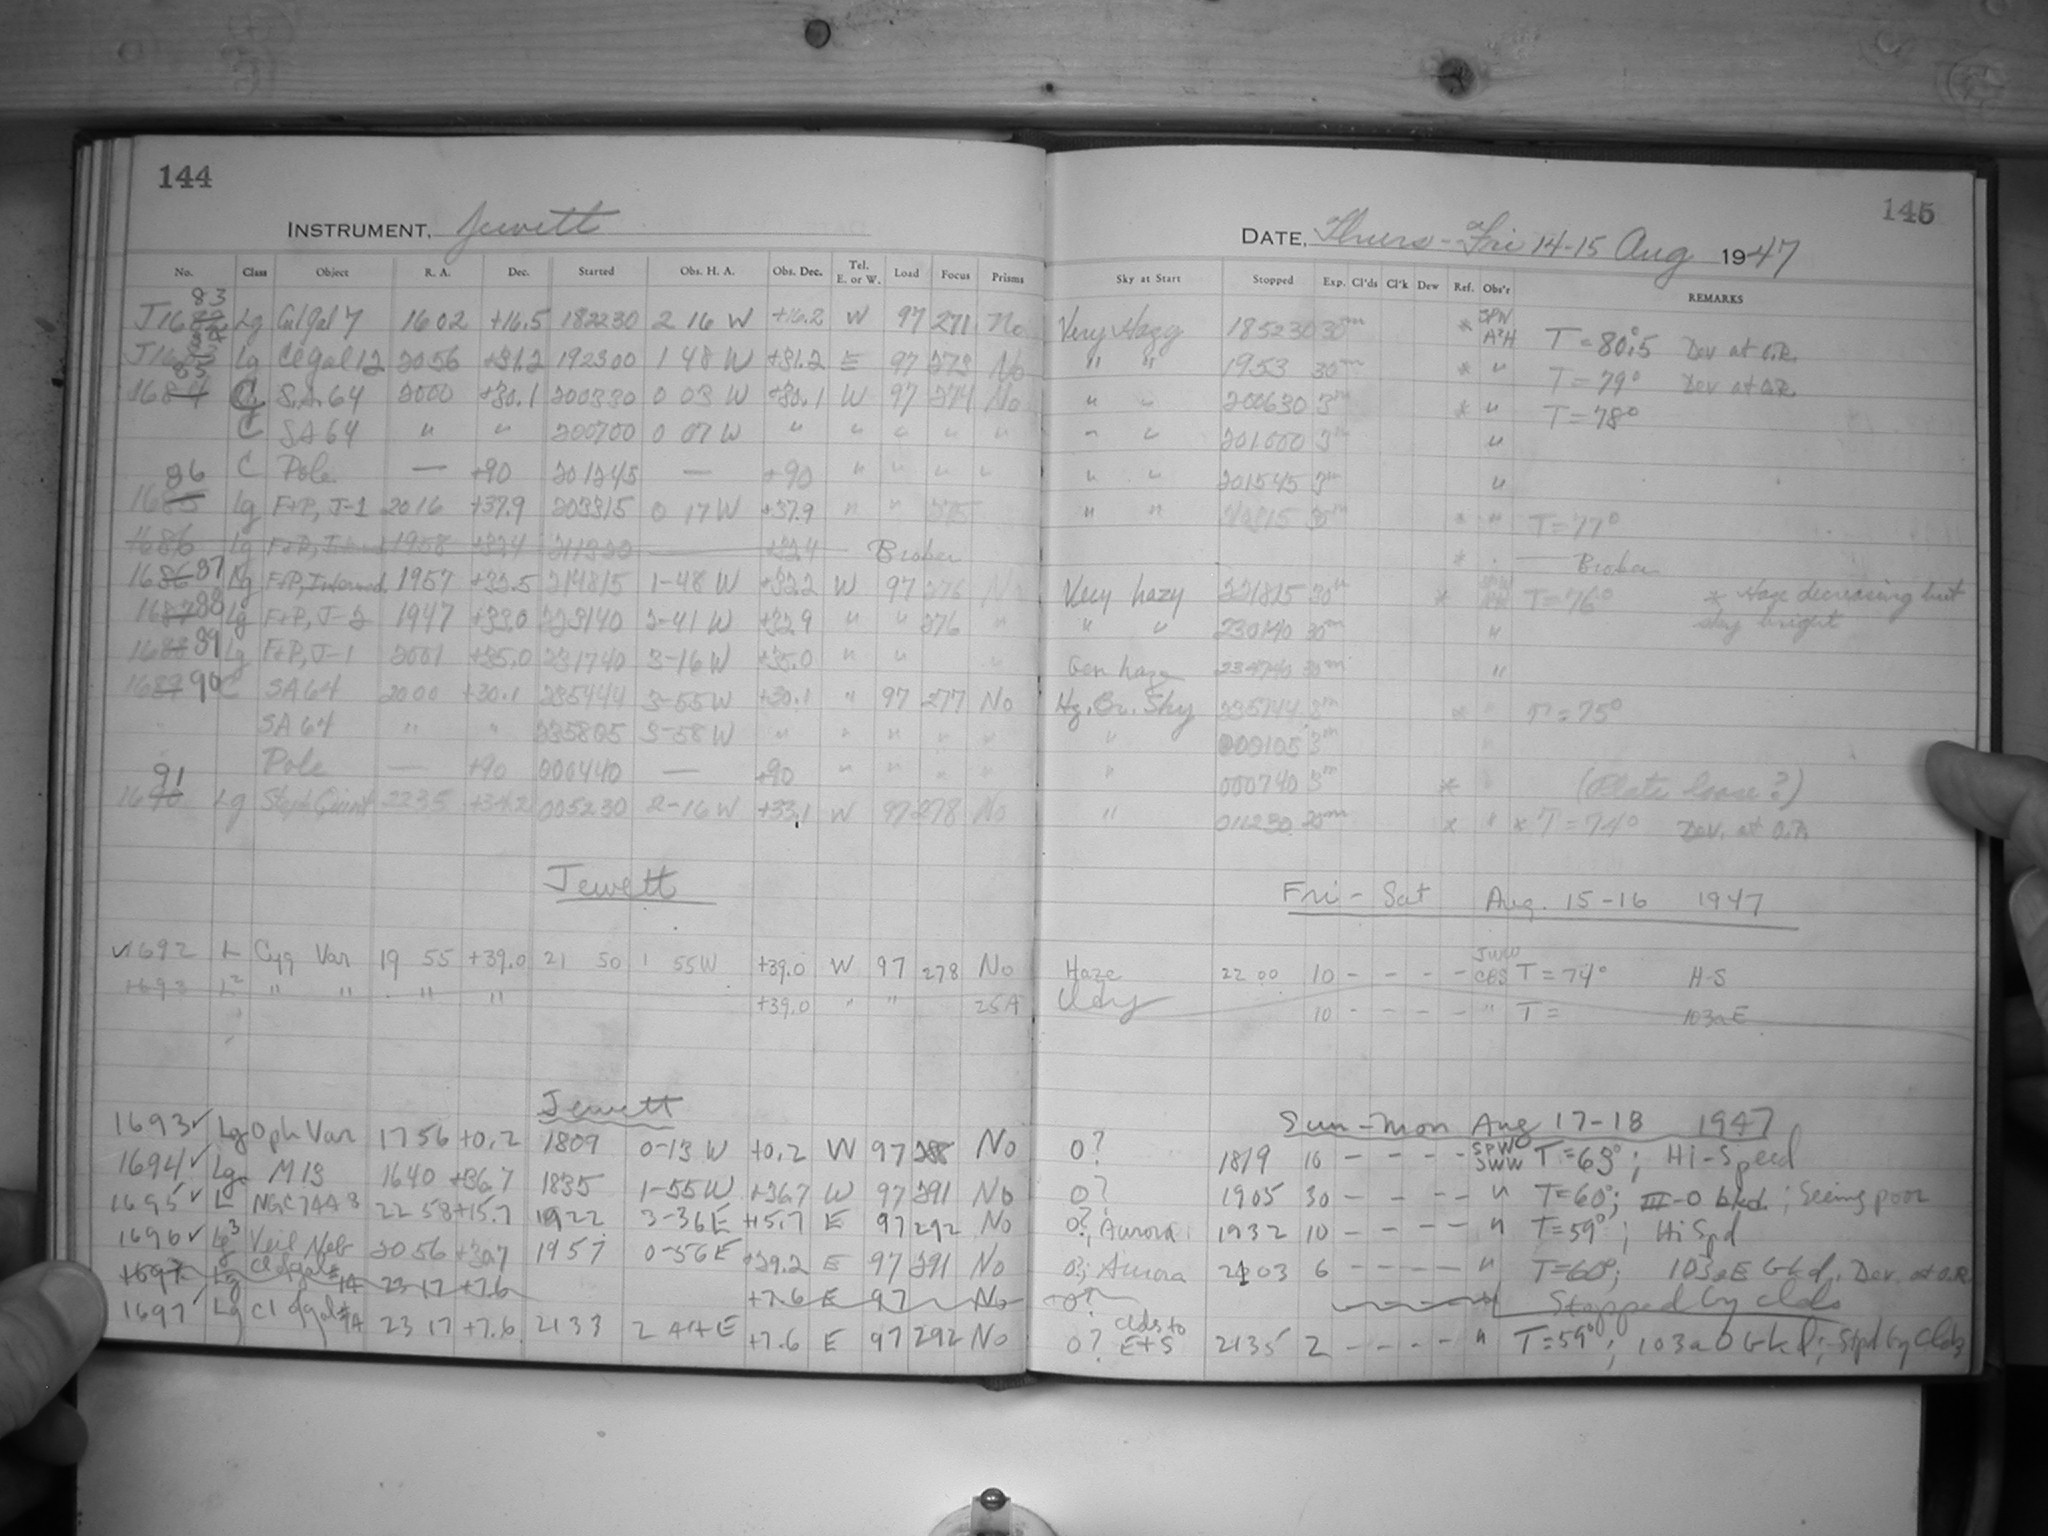 144
145
INSTRUMENT, Jewett
DATE, Thurs - Fri 14-15 Aug 1947
No. Class Object R. A. Dec. Started Obs. H. A. Obs. Dec. Tel. E. or W. Load Focus Prisms Sky at Start Stopped Exp. Cl'ds Cl'k Dew Ref. Obs'r REMARKS
83 Lg Cl gal 7 1602 +16.5 182230 2 16 W +16.2 W 97 271 No Very Hazy 185230 30m * T = 80.5 Dev at O.R.
Lg Cl gal 12 2056 +81.2 192300 1 48 W +81.2 E 97 273 No " " 1953 30m * " T = 79° Dev at O.R.
85 C S.A. 64 2000 +30.1 200330 0 03 W +30.1 W 97 274 No " " 200630 3m * " T = 78°
C SA 64 " " 200700 0 07 W " " " " " " " 201000 3m "
C Pole — +90 201245 — +90 " " " " " " 201545 3m "
86 1685 Lg F+P, J-1 2016 +37.9 203815 0 17 W +37.9 " " 275 " " 30m * " T = 77°
1686 Lg 1958 211320 Broken * Broken
1686 87 Lg F+P, Intermed 1957 +32.5 214815 1-48 W +32.2 W 97 276 No Very hazy 221815 30m * T = 76° * Haze decreasing but sky bright
1687 88 Lg F+P, J-2 1947 +33.0 223140 2-41 W +32.9 " " 276 " " " 230140 30m "
1688 89 Lg F+P, J-1 2001 +35.0 231740 3-16 W +35.0 " " " Gen haze 234740 30m "
90 C SA 64 2000 +30.1 235444 3-55 W +30.1 " 97 277 No Hz. Br. Sky 235744 3m T = 75°
SA 64 " " 235805 3-58 W " " " " " " 000105 3m
Pole — +90 000440 — +90 " " " " " 000740 3m * (Plate loose?)
91 1690 Lg Steph Quint 2235 +34.2 005230 2-16 W +33.1 W 97 278 No " 011230 20m * * * T = 74° Dev. at O.R.
Jewett
Fri - Sat Aug. 15-16 1947
✓1692 L Cyg Var 19 55 +39.0 21 50 1 55W +39.0 W 97 278 No Haze 22 00 10 - - - - JWW CBS T = 74° H-S
1693 L2 " " " " +39.0 " " 25A Cldy 10 - - - - " T = 103aE
Jewett
Sun - Mon Aug 17-18 1947
1693✓ Lg Oph Var 17 56 +0.2 1809 0-13 W +0.2 W 97 No 0? 1819 10 - - - - T = 63°; Hi-Speed
1694✓ Lg M 13 1640 +36.7 1835 1-55W +36.7 W 97 291 No 0? 1905 30 - - - - " T=60°; III-O bkd; Seeing poor
1695✓ L NGC 7448 22 58 +15.7 1922 3-36E +15.7 E 97 292 No 0?, Aurora 1932 10 - - - - " T=59°; Hi Spd
1696✓ Lg3 Veil Neb 2056 +30.7 1957 0-56E +29.2 E 97 291 No 0?; Aurora 2003 6 - - - - " T=60°; 103aE bkd. Dev. at O.R.
1697 Lg Cl of gal 1A 23 17 +7.6 +7.6 E 97 No 0? Stopped by clds
1697✓ Lg Cl of gal 1A 23 17 +7.6 2133 2 44 E +7.6 E 97 292 No 0? clds to E+S 2135 2 - - - - " T=59°; 103aO bkd; Stpd by Clds